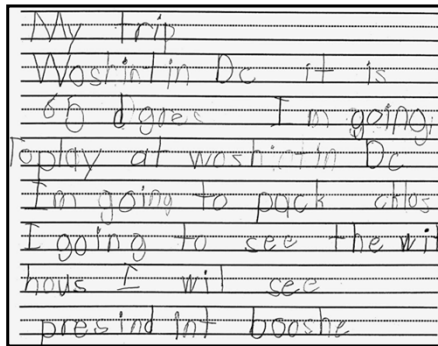 My trip
Woshintin Dc it is
65 dgrees I'm going,
Toplay at woshintin Dc
I'm going to pack cklos
I going to see the wit
hous I wil see
presind int booshe